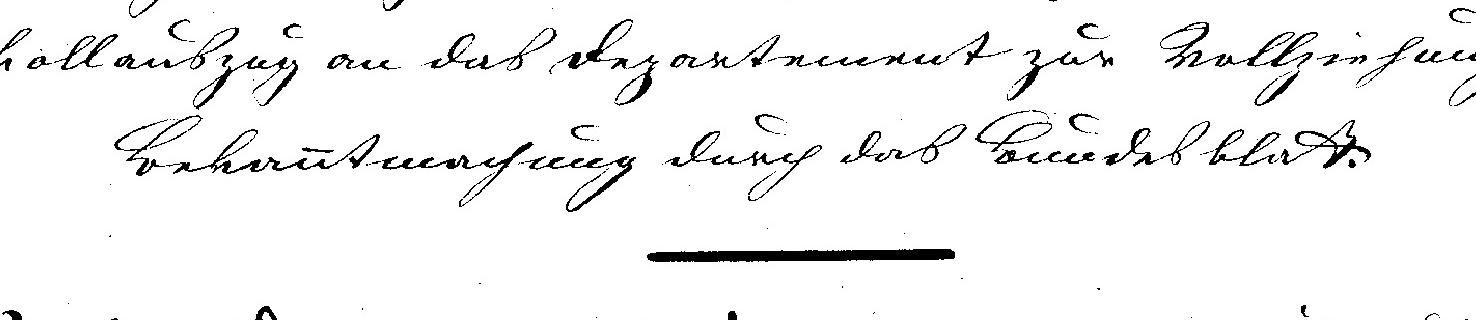 kollauszug an das Departement zur Vollziehung
Bekan̅tmachung durch das Bundesblatt.